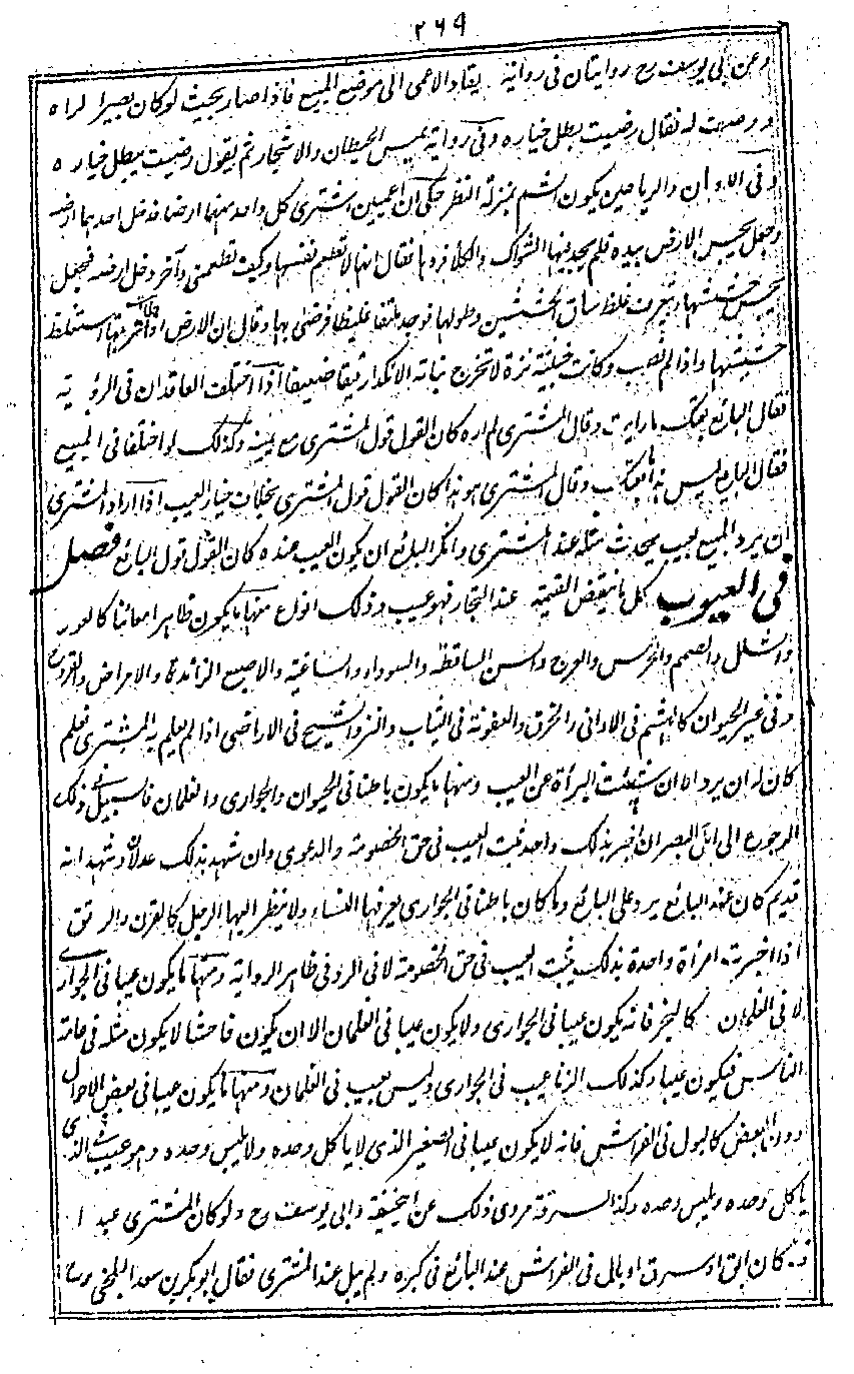 ٢٦٩
وعن ابي يوسف رح روايتان في رواية يقاد الاعمى الى موضع المبيع فاذا صار بحيث لو كان بصيرا لراه
ووصف له فقال رضيت بطل خياره وفي رواية يمس الحيطان والاشجار ثم يقول رضيت يبطل خياره
وفي الادهان والرياحين يكون الشم بمنزلة النظر حكي ان اعميين اشترى كل واحد منهما ارضا فدخل احدهما ارضه
وجعل يحبس الارض بيده فلم يجد فيها الشواك والكلأ فردها فقال انها لا تطعم نفسها وكيف تطعمني وآخر دخل ارضه فجعل
يحبس حشيشها ويعرف غلظ ساق الحشيش وطولها فوجد ملتفا غليظا فرضي بها وقال ان الارض اذا طابت استغلظ
حشيشها واذا لم تطب وكانت خبيثة نزة لا تخرج نباته الا نكدا رقيقا ضعيفا اذا اختلف العاقدان في الرؤية
فقال البائع بعتك ما رايت وقال المشتري لم اره كان القول قول المشتري مع يمينه وكذلك لو اختلفا في المبيع
فقال البائع ليس هذا ما بعتك وقال المشتري هو هذا كان القول قول المشتري بخلاف خيار العيب اذا اراد المشتري
ان يرد المبيع بعيب يحدث مثله عند المشتري وانكر البائع ان يكون العيب عنده كان القول قول البائع فصل
في العيوب كل ما ينقص القيمة عند التجار فهو عيب وذلك انواع منها ما يكون ظاهرا معاينا كالعور
والشلل والصمم والخرس والعرج والسن الساقطة والسوداء والشاغية والاصبع الزائدة والامراض والقروح
وفي غير الحيوان كالهشم في الاواني والخرق والعفونة في الثياب والنز والسبخ في الاراضي اذا لم يعلم به المشتري فعلم
كان له ان يرده ان شئت البرأة عن العيب ومنها ما يكون باطنا في الحيوان والجواري والغلمان فالسبيل في ذلك
الرجوع الى اهل البصر ان اخبر بذلك واحد ثبت العيب في حق الخصومة والدعوى وان شهد بذلك عدلان وشهدا انه
قديم كان عند البائع يرد على البائع وما كان باطنا في الجواري يعرفها النساء ولا ينظر اليها الرجل كالقرن والرتق
اذا اخبرت امرأة واحدة بذلك يثبت العيب في حق الخصومة لا في الرد في ظاهر الرواية ومنها ما يكون عيبا في الجواري
لا في الغلمان كالبخر فانه يكون عيبا في الجواري ولا يكون عيبا في الغلمان الا ان يكون فاحشا لا يكون مثله في عامة
الناس فيكون عيبا وكذلك الزنا عيب في الجواري وليس بعيب في الغلمان ومنها ما يكون عيبا في بعض الاحوال
دون البعض كالبول في الفراش فانه لا يكون عيبا في الصغير الذي لا ياكل وحده ولا يلبس وحده وهو عيب في الذي
ياكل وحده ويلبس وحده وكذا السرقة مروي ذلك عن ابيحنيفة وابي يوسف رح ولو كان المشتري عبدا
قد كان ابق او سرق او بال في الفراش عند البائع في كبره ولم يبل عند المشتري فقال ابو بكر بن سعد البلخي رح